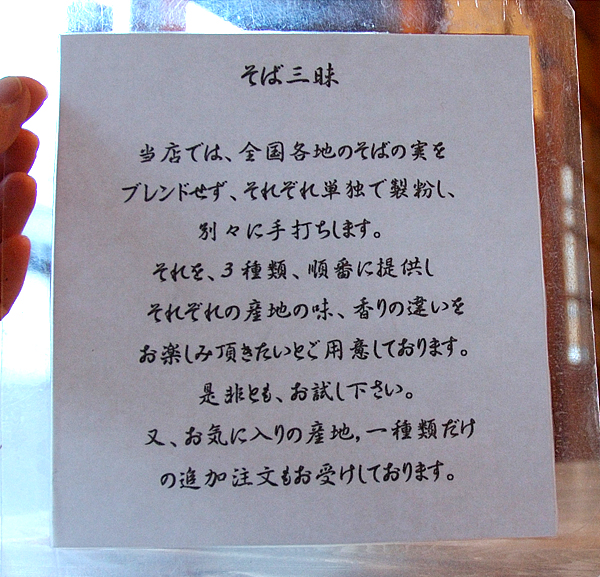 そば三昧
当店では、全国各地のそばの実を
ブレンドせず、それぞれ単独で製粉し、
別々に手打ちします。
それを、3種類、順番に提供し
それぞれの産地の味、香りの違いを
お楽しみ頂きたいとご用意しております。
是非とも、お試し下さい。
又、お気に入りの産地,一種類だけ
の追加注文もお受けしております。